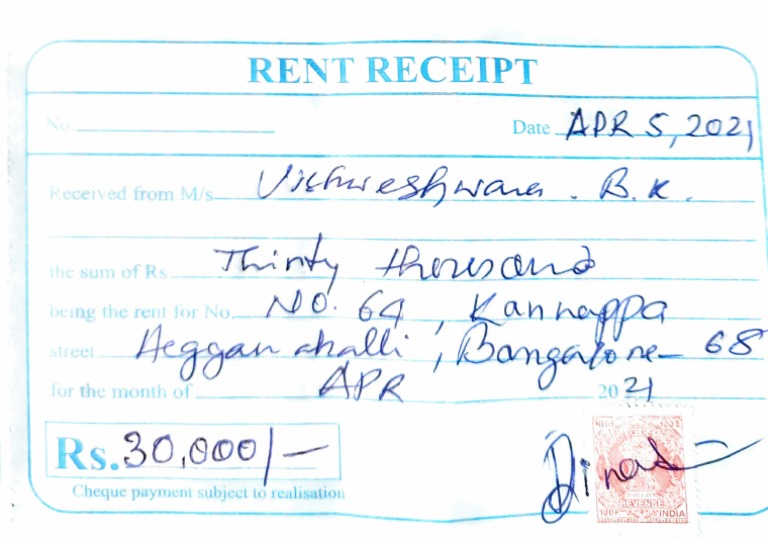 RENT RECEIPT
No.
Date APR 5, 2021
Received from M/s Vishweshwara . B.K.
the sum of Rs Thirty thousand
being the rent for No. NO. 64, Kannappa
street Heggan ahalli, Bangalore 68
for the month of APR 2021
Rs. 30,000/-
Cheque payment subject to realisation
REVENUE
INDIA